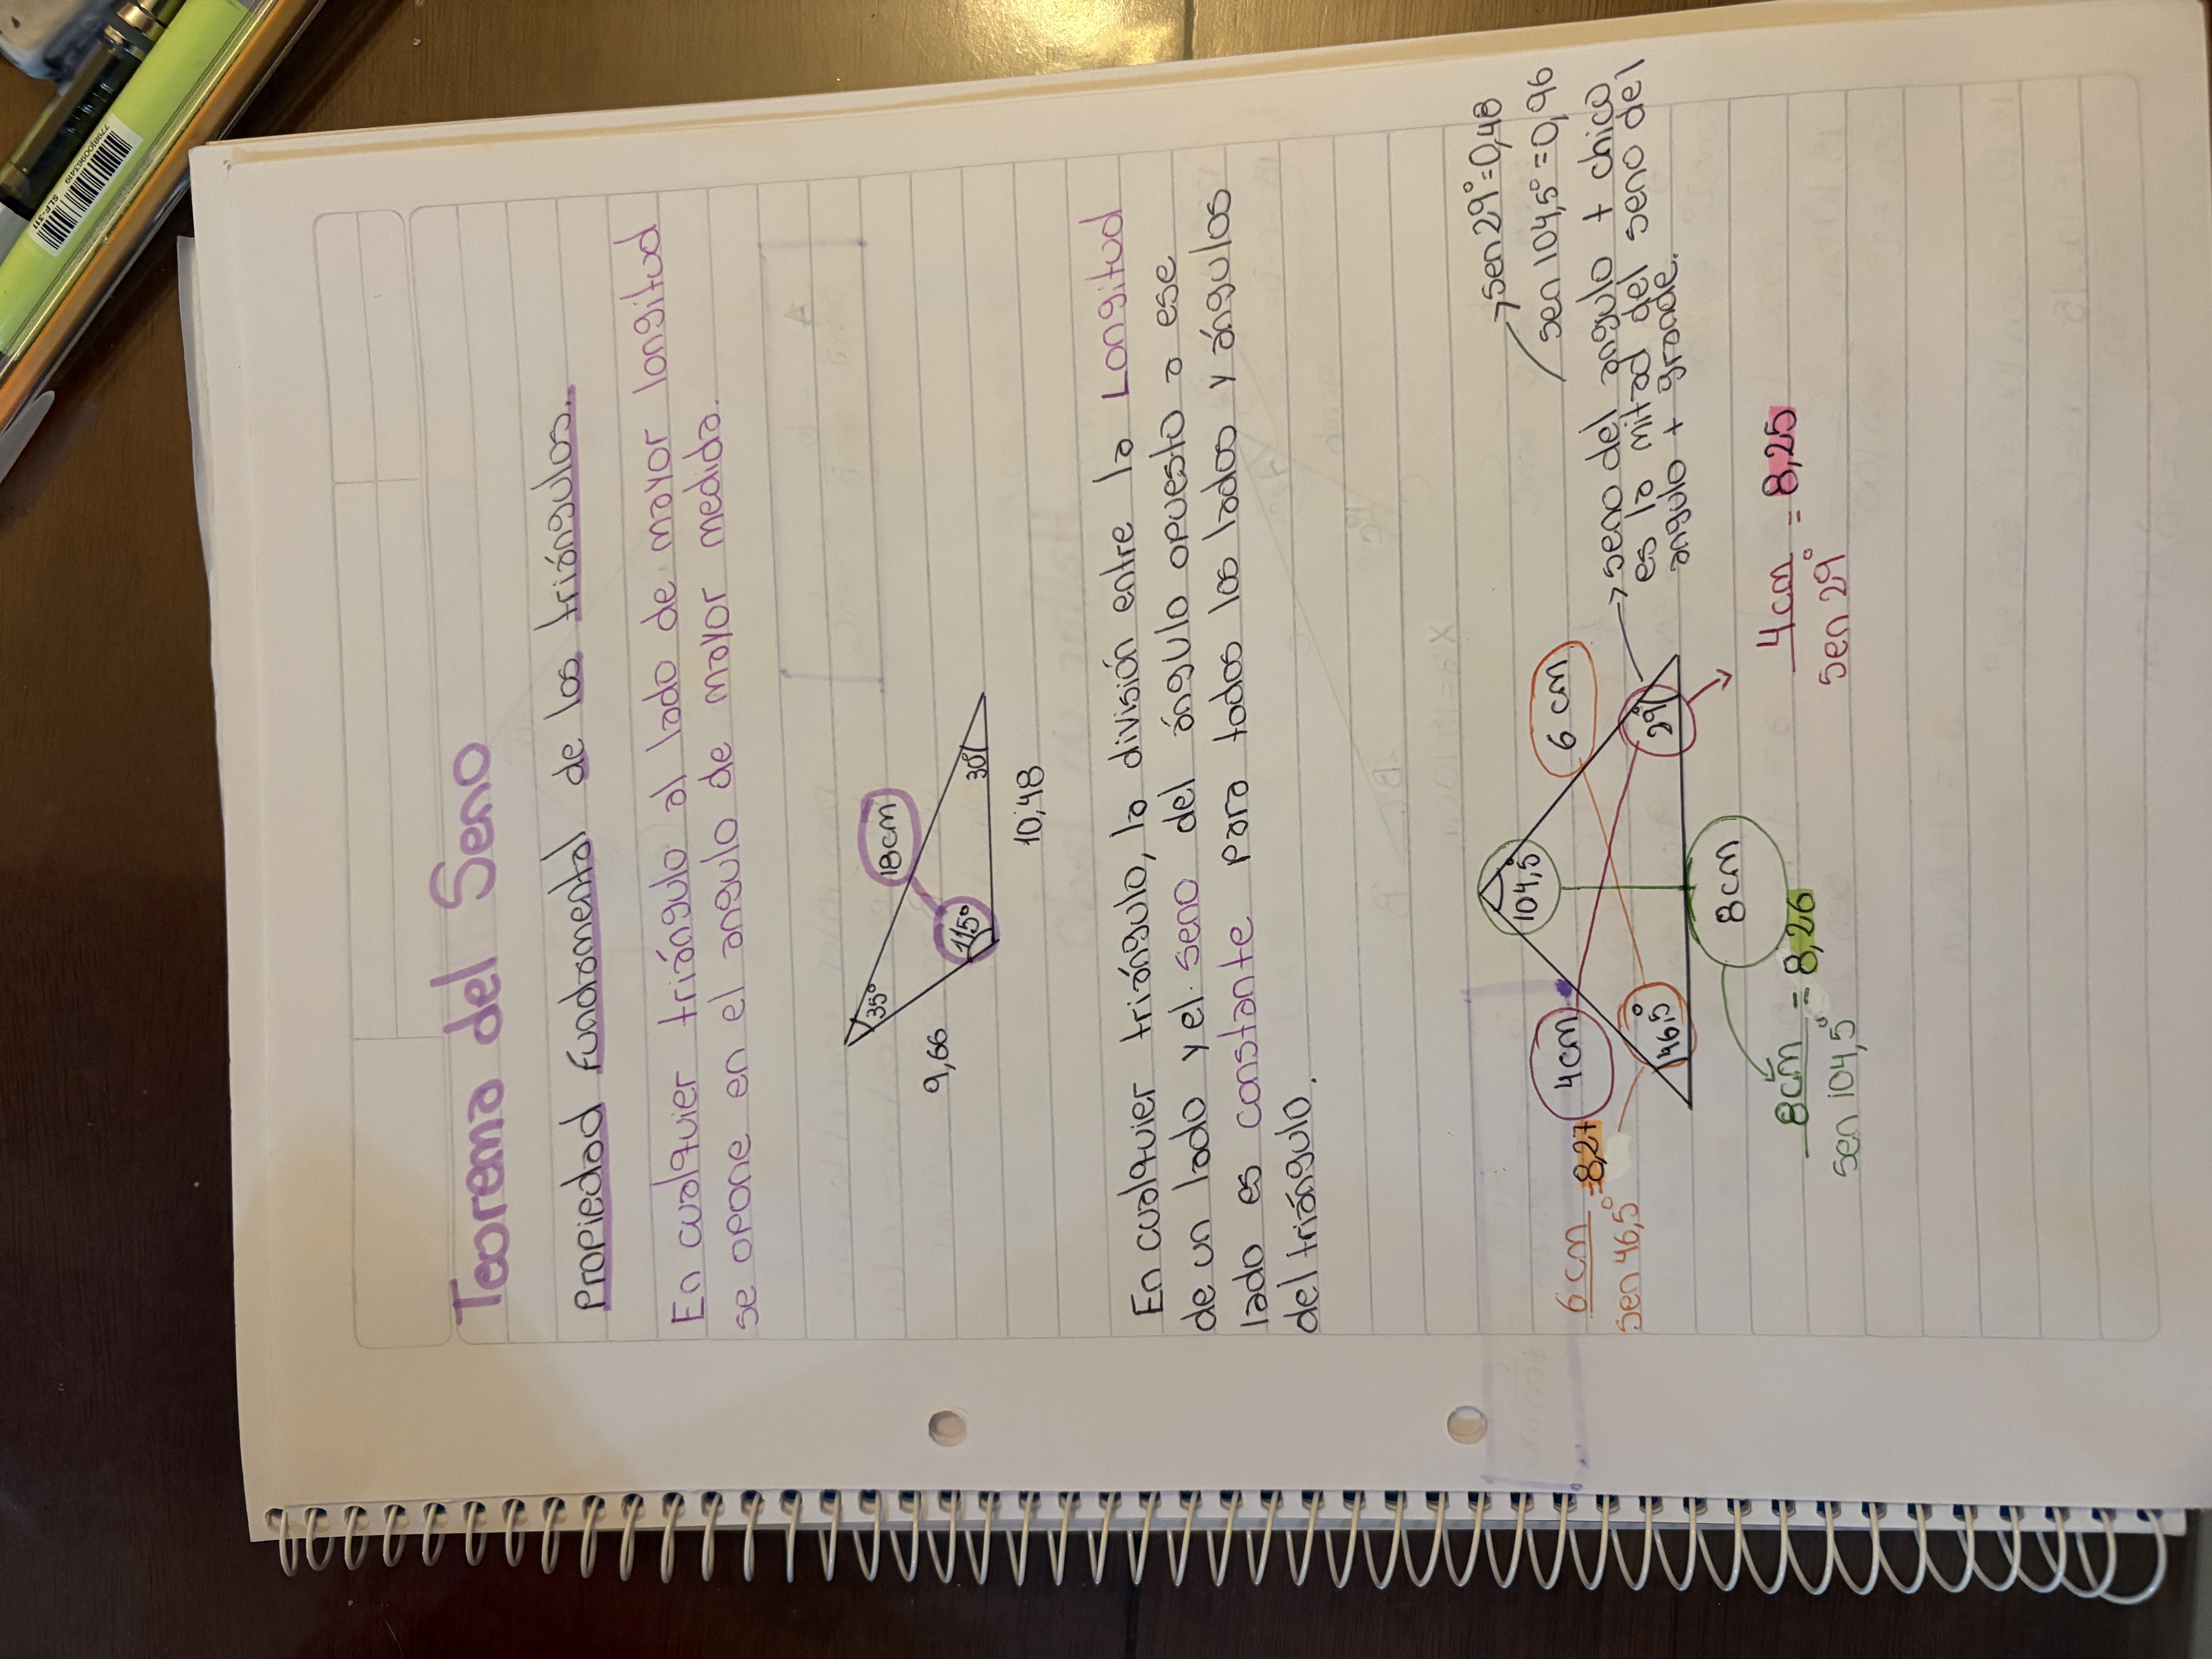 Teorema del Seno
Propiedad Fundamental de los triángulos.
En cualquier triángulo al lado de mayor longitud
se opone en el angulo de mayor medida.
35°
18cm
9,66
115°
30°
10,48
En cualquier triángulo, la división entre la Longitud
de un lado y el seno del ángulo opuesto a ese
lado es constante para todos los lados y ángulos
del triángulo.
→sen 29°=0,48
sen 104,5°=0,96
6 cm
sen 46,5°
=8,27
4cm
104,5°
6 cm
46,5°
29°
8cm
→ seno del angulo + chico
es la mitad del seno del
angulo + grande.
8cm
sen 104,5°
= 8,26
4cm
sen 29°
= 8,25
SLP-311